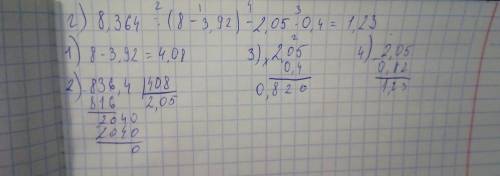 г) 8,364 : (8 - 3,92) - 2,05 · 0,4 = 1,23
2 1 4 3
1) 8 - 3,92 = 4,08
3) × 2,05
2
0,4
0,820
4) - 2,05
0,82
1,23
2) 836,4 | 408
816 2,05
2040
2040
0